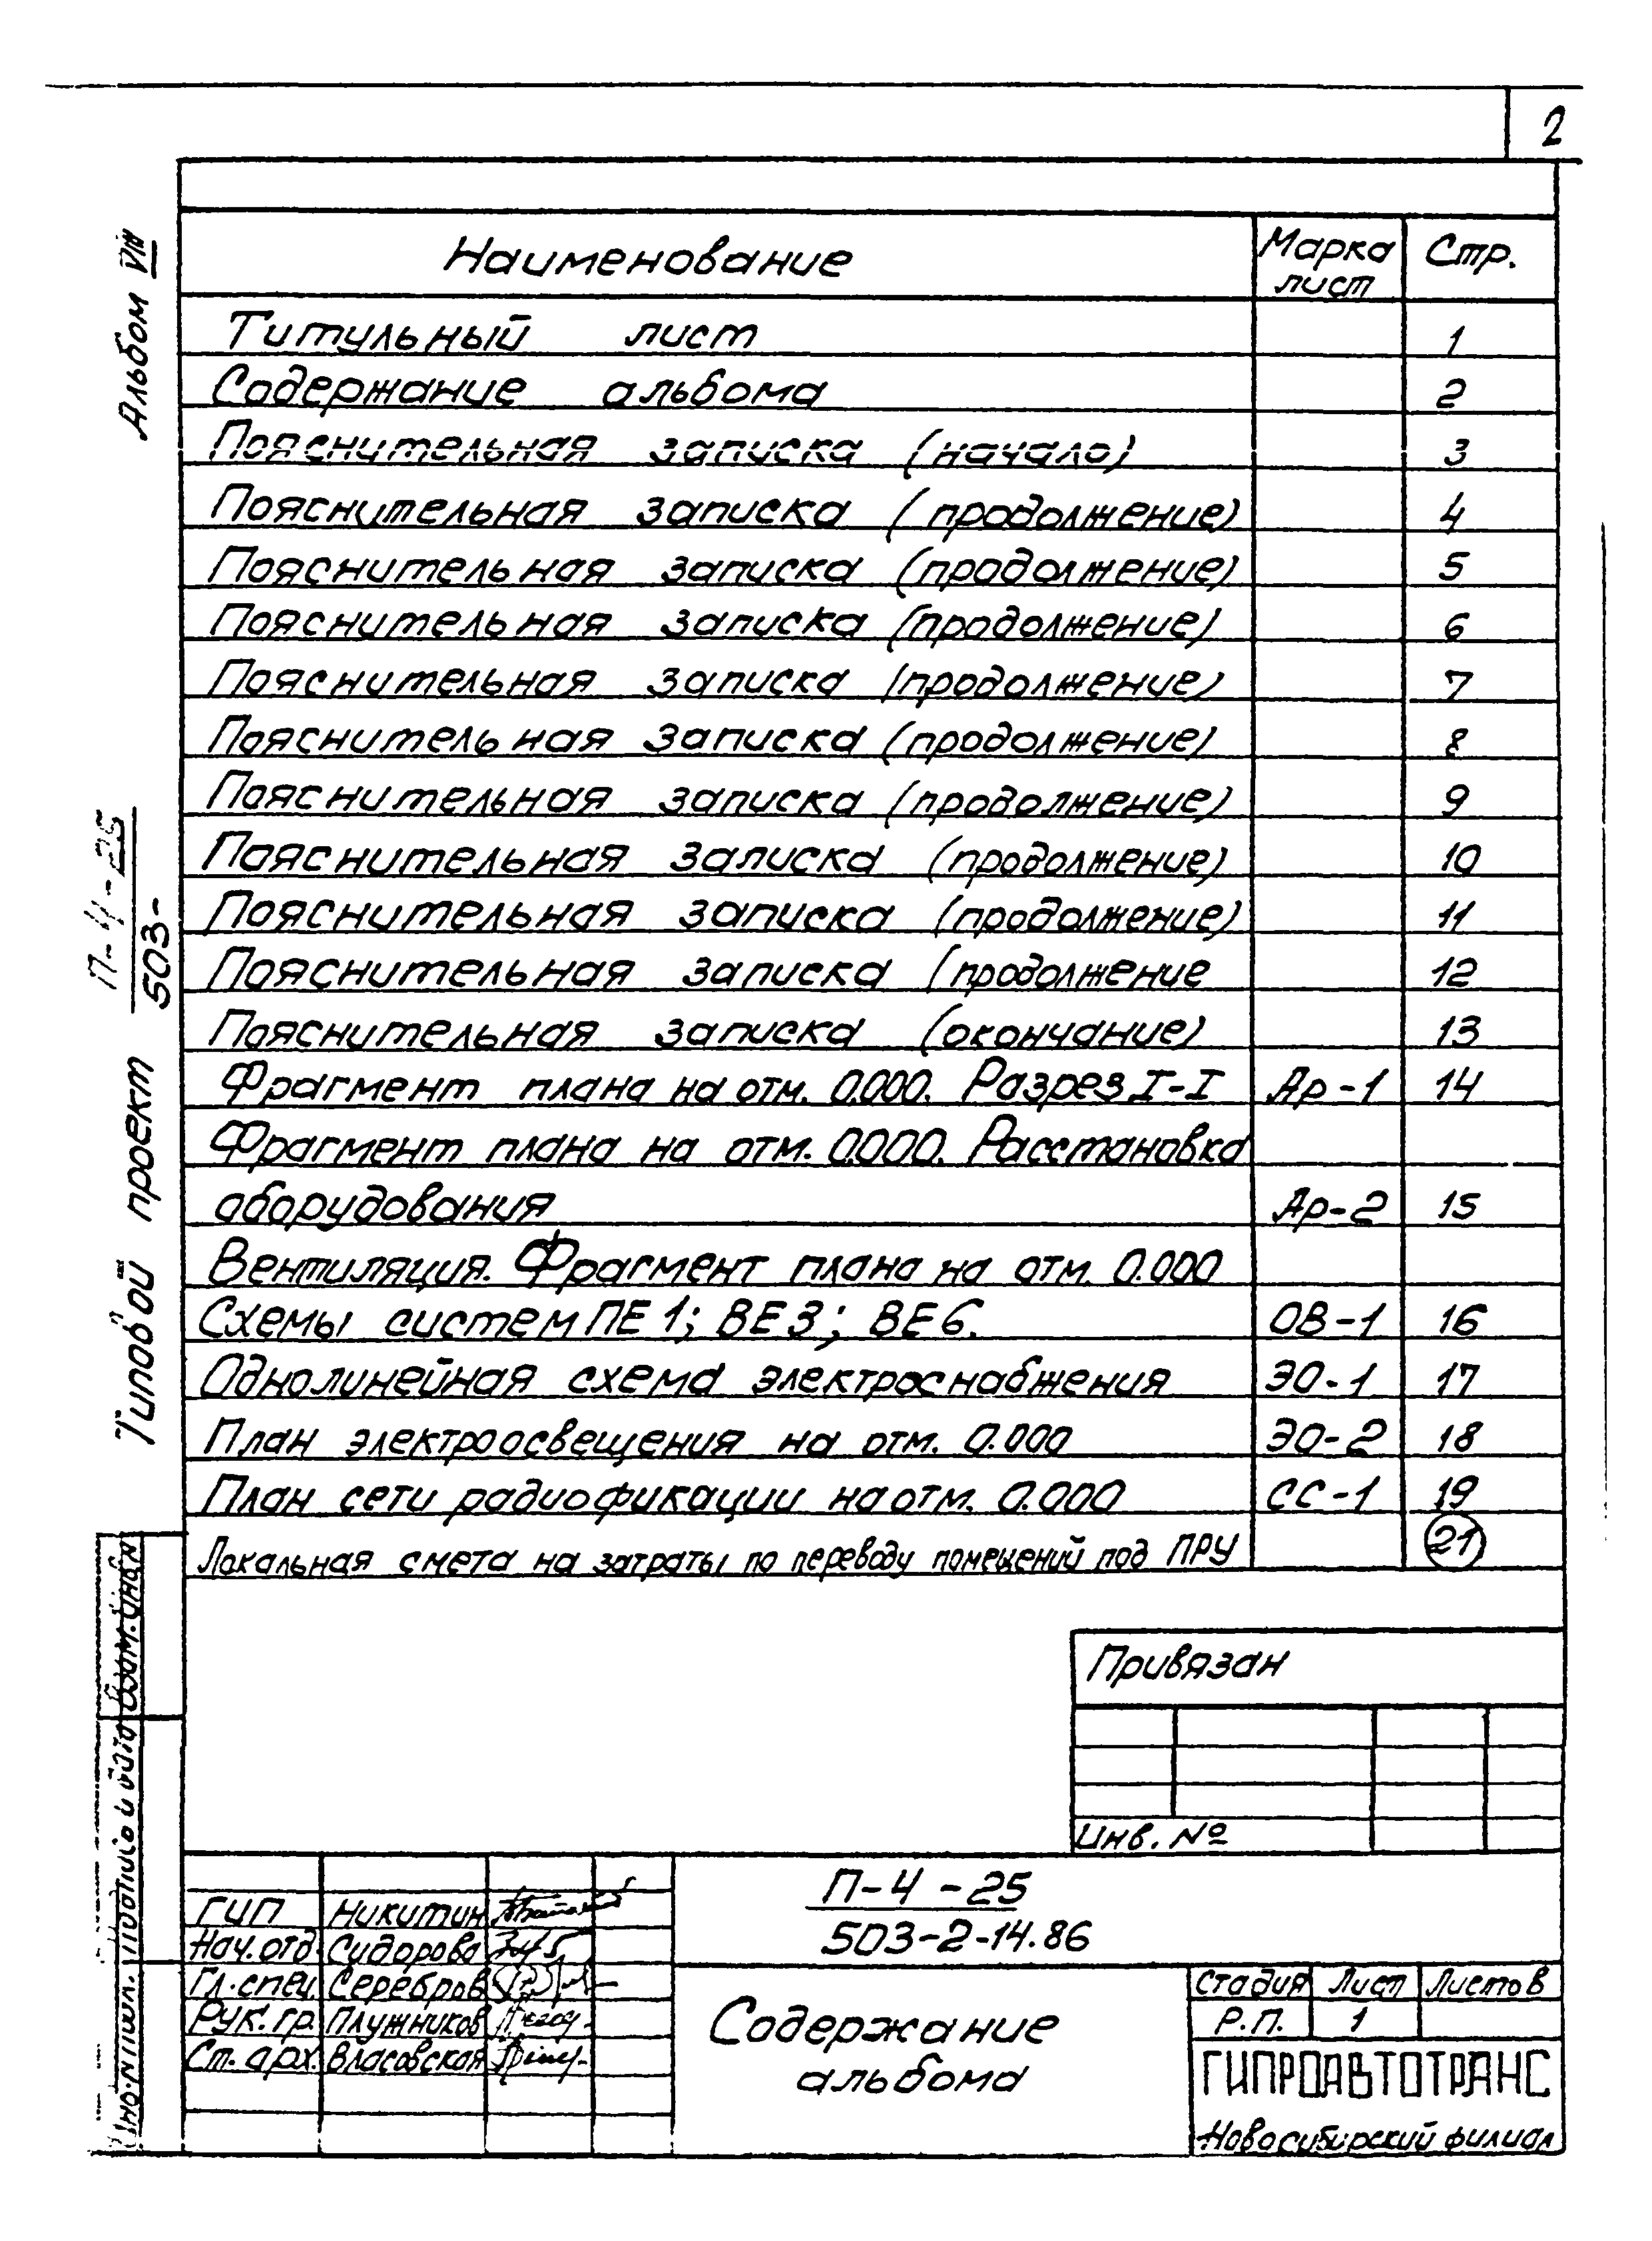 2
Альбом VIII
Типовой проект П-4-25
503-
Наименование Марка лист Стр.
Титульный лист 1
Содержание альбома 2
Пояснительная записка (начало) 3
Пояснительная записка (продолжение) 4
Пояснительная записка (продолжение) 5
Пояснительная записка (продолжение) 6
Пояснительная записка (продолжение) 7
Пояснительная записка (продолжение) 8
Пояснительная записка (продолжение) 9
Пояснительная записка (продолжение) 10
Пояснительная записка (продолжение) 11
Пояснительная записка (продолжение 12
Пояснительная записка (окончание) 13
Фрагмент плана на отм. 0.000. Разрез I-I Ар-1 14
Фрагмент плана на отм. 0.000. Расстановка
оборудования Ар-2 15
Вентиляция. Фрагмент плана на отм. 0.000
Схемы систем ПЕ1; ВЕ3; ВЕ6. ОВ-1 16
Однолинейная схема электроснабжения ЭО-1 17
План электроосвещения на отм. 0.000 ЭО-2 18
План сети радиофикации на отм. 0.000 СС-1 19
Локальная смета на затраты по переводу помещений под ПРУ 21
Привязан
Инв. №
П-4-25
503-2-14.86
ГИП Никитин
Нач.отд. Сидорова
Гл.спец. Серебров
Рук. гр. Плужников
Ст. арх. Власовская
Содержание
альбома
Стадия Лист Листов
Р.П. 1
ГИПРОАВТОТРАНС
Новосибирский филиал
Взам.инв.